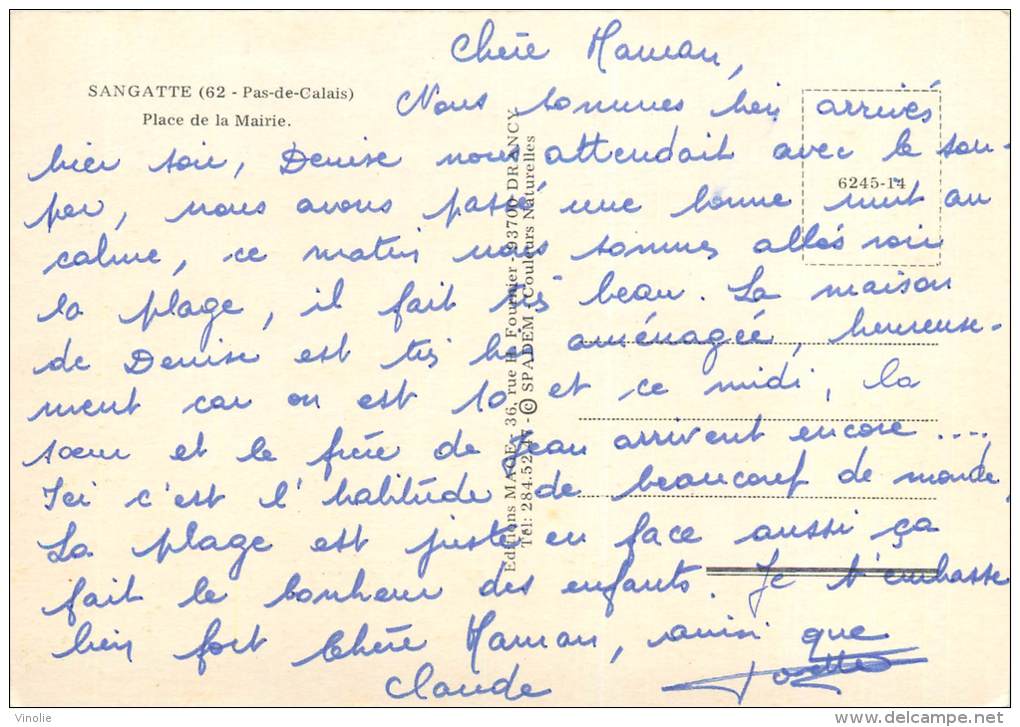 Chère Maman,
SANGATTE (62 - Pas-de-Calais)
Place de la Mairie.
Nous sommes bien arrivés
hier soir, Denise nous attendait avec le sou-
per, nous avons passé une bonne nuit au
calme, ce matin nous sommes allés voir
la plage, il fait très beau. La maison
de Denise est très bien aménagée, heureuse-
ment car on est 10 et ce midi, la
sœur et le frère de Jean arrivent encore ....,
Ici c'est l'habitude de beaucoup de monde,
La plage est juste en face aussi ça
fait le bonheur des enfants. Je t'embrasse
bien fort Chère Maman, ainsi que
Claude
Josette
6245-14
Editions MAGE, 36, rue H. Fournier, 93700 DRANCY
Tél: 284.52.47 - © SPADEM Couleurs Naturelles
Vinolie
www.delcampe.net